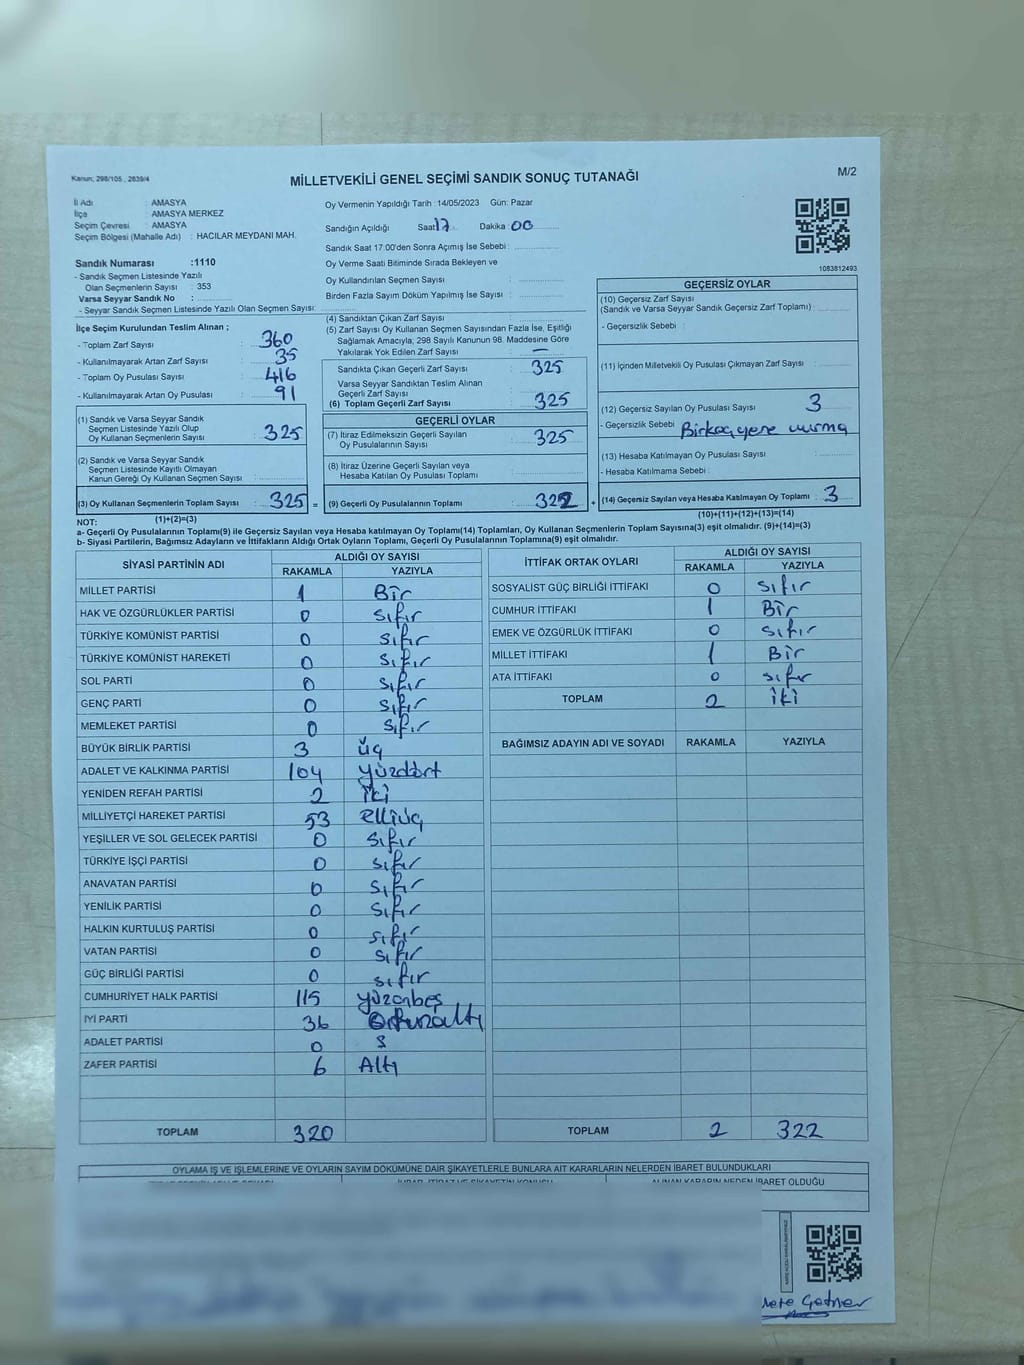 Kanun; 298/105 , 2839/4
MİLLETVEKİLİ GENEL SEÇİMİ SANDIK SONUÇ TUTANAĞI
M/2
İl Adı : AMASYA
İlçe : AMASYA MERKEZ
Seçim Çevresi : AMASYA
Seçim Bölgesi (Mahalle Adı) : HACILAR MEYDANI MAH.
Oy Vermenin Yapıldığı Tarih : 14/05/2023 Gün: Pazar
Sandığın Açıldığı Saat 17 Dakika 00
Sandık Saat 17:00'den Sonra Açımış İse Sebebi :
Oy Verme Saati Bitiminde Sırada Bekleyen ve
Oy Kullandırılan Seçmen Sayısı :
Birden Fazla Sayım Döküm Yapılmış İse Sayısı :
1083812493
Sandık Numarası :1110
- Sandık Seçmen Listesinde Yazılı
Olan Seçmenlerin Sayısı : 353
Varsa Seyyar Sandık No :
- Seyyar Sandık Seçmen Listesinde Yazılı Olan Seçmen Sayısı:
İlçe Seçim Kurulundan Teslim Alınan ;
- Toplam Zarf Sayısı : 360
- Kullanılmayarak Artan Zarf Sayısı : 35
- Toplam Oy Pusulası Sayısı : 416
- Kullanılmayarak Artan Oy Pusulası : 91
(1) Sandık ve Varsa Seyyar Sandık
Seçmen Listesinde Yazılı Olup
Oy Kullanan Seçmenlerin Sayısı : 325
(2) Sandık ve Varsa Seyyar Sandık
Seçmen Listesinde Kayıtlı Olmayan
Kanun Gereği Oy Kullanan Seçmen Sayısı :
(3) Oy Kullanan Seçmenlerin Toplam Sayısı : 325 =
(4) Sandıktan Çıkan Zarf Sayısı :
(5) Zarf Sayısı Oy Kullanan Seçmen Sayısından Fazla İse, Eşitliği
Sağlamak Amacıyla; 298 Sayılı Kanunun 98. Maddesine Göre
Yakılarak Yok Edilen Zarf Sayısı : —
Sandıkta Çıkan Geçerli Zarf Sayısı : 325
Varsa Seyyar Sandıktan Teslim Alınan
Geçerli Zarf Sayısı :
(6) Toplam Geçerli Zarf Sayısı : 325
GEÇERLİ OYLAR
(7) İtiraz Edilmeksizin Geçerli Sayılan
Oy Pusulalarının Sayısı : 325
(8) İtiraz Üzerine Geçerli Sayılan veya
Hesaba Katılan Oy Pusulası Toplamı :
(9) Geçerli Oy Pusulalarının Toplamı : 322 +
GEÇERSİZ OYLAR
(10) Geçersiz Zarf Sayısı
(Sandık ve Varsa Seyyar Sandık Geçersiz Zarf Toplamı) :
- Geçersizlik Sebebi :
(11) İçinden Milletvekili Oy Pusulası Çıkmayan Zarf Sayısı :
(12) Geçersiz Sayılan Oy Pusulası Sayısı : 3
- Geçersizlik Sebebi : Birkaç yere vurma
(13) Hesaba Katılmayan Oy Pusulası Sayısı :
- Hesaba Katılmama Sebebi :
(14) Geçersiz Sayılan veya Hesaba Katılmayan Oy Toplamı : 3
NOT: (1)+(2)=(3)
(10)+(11)+(12)+(13)=(14)
a- Geçerli Oy Pusulalarının Toplamı(9) ile Geçersiz Sayılan veya Hesaba katılmayan Oy Toplamı(14) Toplamları, Oy Kullanan Seçmenlerin Toplam Sayısına(3) eşit olmalıdır. (9)+(14)=(3)
b- Siyasi Partilerin, Bağımsız Adayların ve İttifakların Aldığı Ortak Oyların Toplamı, Geçerli Oy Pusulalarının Toplamına(9) eşit olmalıdır.
SİYASİ PARTİNİN ADI ALDIĞI OY SAYISI
RAKAMLA YAZIYLA
MİLLET PARTİSİ 1 Bir
HAK VE ÖZGÜRLÜKLER PARTİSİ 0 sıfır
TÜRKİYE KOMÜNİST PARTİSİ 0 sıfır
TÜRKİYE KOMÜNİST HAREKETİ 0 sıfır
SOL PARTİ 0 sıfır
GENÇ PARTİ 0 sıfır
MEMLEKET PARTİSİ 0 sıfır
BÜYÜK BİRLİK PARTİSİ 3 üç
ADALET VE KALKINMA PARTİSİ 104 yüzdört
YENİDEN REFAH PARTİSİ 2 İki
MİLLİYETÇİ HAREKET PARTİSİ 53 elliüç
YEŞİLLER VE SOL GELECEK PARTİSİ 0 sıfır
TÜRKİYE İŞÇİ PARTİSİ 0 sıfır
ANAVATAN PARTİSİ 0 sıfır
YENİLİK PARTİSİ 0 sıfır
HALKIN KURTULUŞ PARTİSİ 0 sıfır
VATAN PARTİSİ 0 sıfır
GÜÇ BİRLİĞİ PARTİSİ 0 sıfır
CUMHURİYET HALK PARTİSİ 115 yüzonbeş
İYİ PARTİ 36 Otuzaltı
ADALET PARTİSİ 0
ZAFER PARTİSİ 6 Altı
TOPLAM 320
İTTİFAK ORTAK OYLARI ALDIĞI OY SAYISI
RAKAMLA YAZIYLA
SOSYALİST GÜÇ BİRLİĞİ İTTİFAKI 0 sıfır
CUMHUR İTTİFAKI 1 Bir
EMEK VE ÖZGÜRLÜK İTTİFAKI 0 sıfır
MİLLET İTTİFAKI 1 Bir
ATA İTTİFAKI 0 sıfır
TOPLAM 2 iki
BAĞIMSIZ ADAYIN ADI VE SOYADI RAKAMLA YAZIYLA
TOPLAM 2 322
OYLAMA İŞ VE İŞLEMLERİNE VE OYLARIN SAYIM DÖKÜMÜNE DAİR ŞİKAYETLERLE BUNLARA AİT KARARLARIN NELERDEN İBARET BULUNDUKLARI
ALINAN KARARIN NEDEN İBARET OLDUĞU